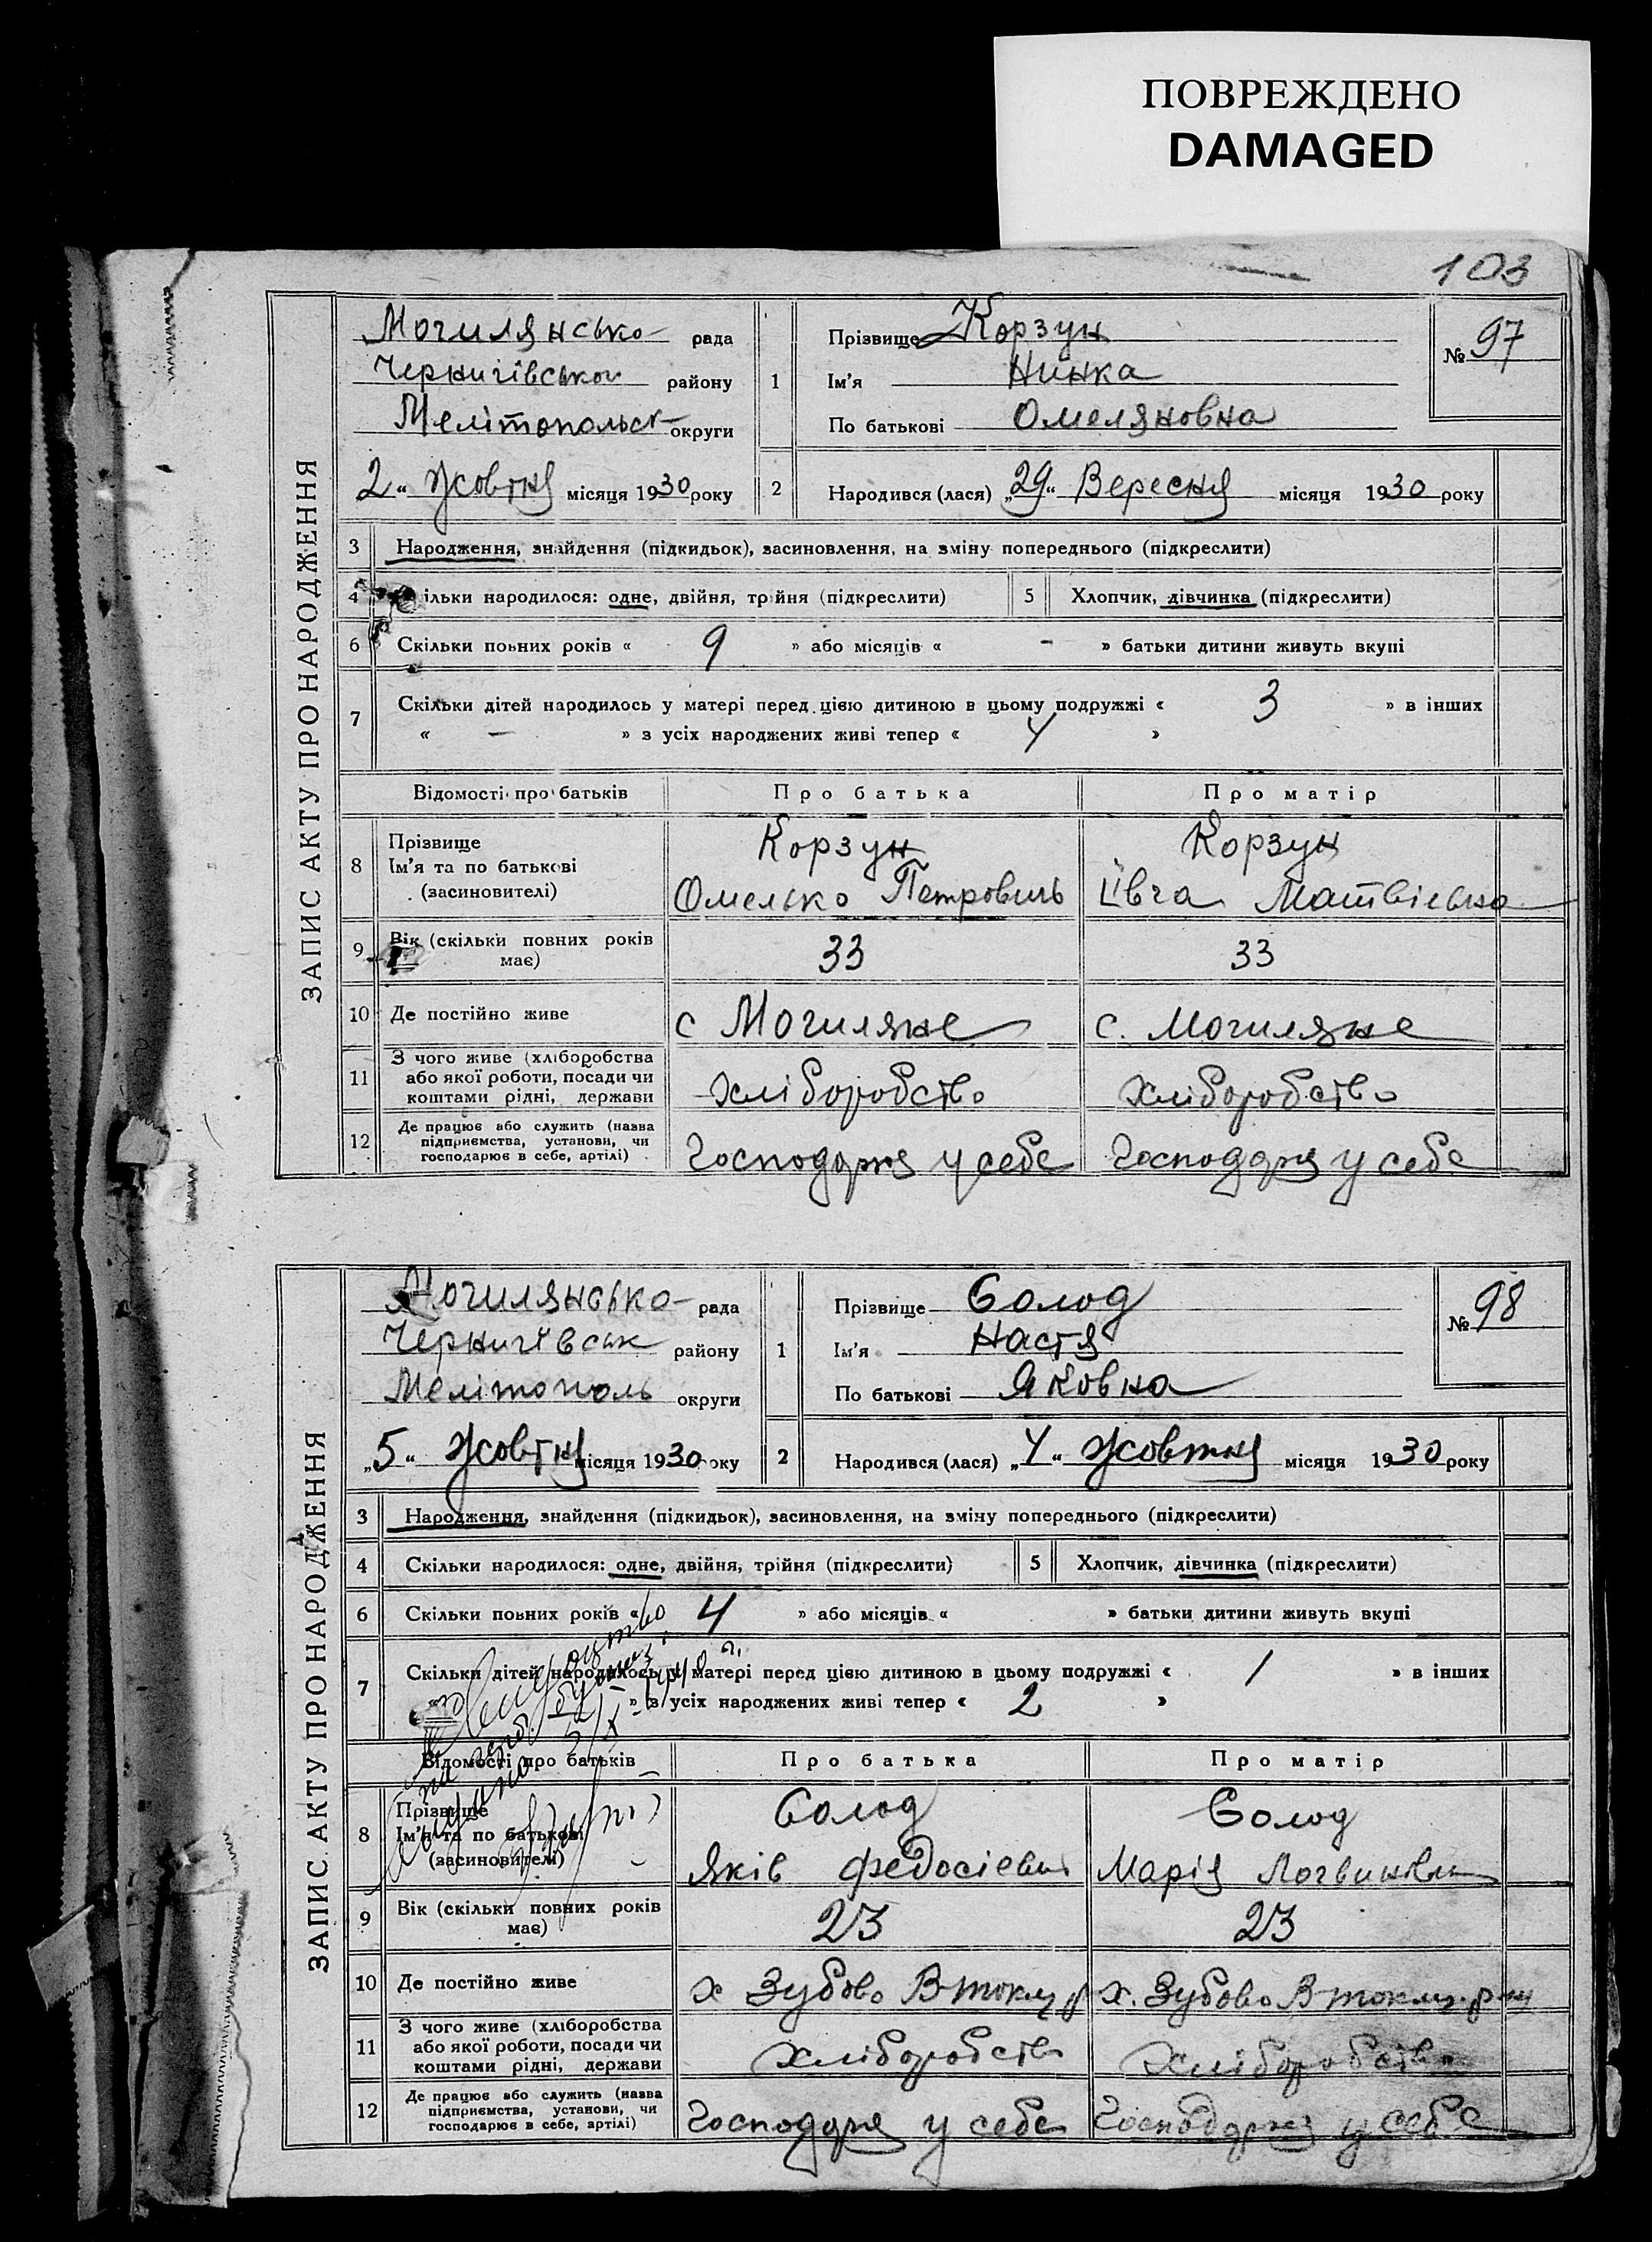 ПОВРЕЖДЕНО
DAMAGED
103
ЗАПИС АКТУ ПРО НАРОДЖЕННЯ
Могилянсько рада
Чернигівськои району
Мелітопольск округи
2 " Жовтня місяця 1930 року
1
Прізвище Корзун
Ім'я Нинка
По батькові Омеляновна
№ 97
2 Народився (лася) „29" Вересня місяця 1930 року
3 Народження, знайдення (підкидьок), засиновлення, на зміну попереднього (підкреслити)
4 ільки народилося: одне, двійня, трійня (підкреслити) 5 Хлопчик, дівчинка (підкреслити)
6 Скільки повних років « 9 » або місяців « - » батьки дитини живуть вкупі
7 Скільки дітей народилось у матері перед цією дитиною в цьому подружжі « 3 » в інших
« — » з усіх народжених живі тепер « 4 »
Відомості про батьків Про батька Про матір
8 Прізвище Ім'я та по батькові (засновителі)
Корзун Корзун
Омелько Петровичь Івга Матвієвна
9 Вік (скільки повних років має) 33 33
10 Де постійно живе с Могиляне с. Могиляне
11 З чого живе (хліборобства або якої роботи, посади чи коштами рідні, держави хліборобство хліборобство
12 Де працює або служить (назва підприємства, установи, чи господарює в себе, артілі) Господаря у себе Господаря у себе
ЗАПИС АКТУ ПРО НАРОДЖЕННЯ
Могилянсько рада
Чернигівськ району
Мелітополь округи
„5" Жовтня місяця 1930 року
1
Прізвище Солод
Ім'я Настя
По батькові Яковна
№ 98
2 Народився (лася) „4" Жовтня місяця 1930 року
3 Народження, знайдення (підкидьок), засиновлення, на зміну попереднього (підкреслити)
4 Скільки народилося: одне, двійня, трійня (підкреслити) 5 Хлопчик, дівчинка (підкреслити)
6 Скільки повних років « 4 » або місяців « » батьки дитини живуть вкупі
7 Скільки дітей народилось у матері перед цією дитиною в цьому подружжі « 1 » в інших
» з усіх народжених живі тепер « 2 »
Відомості про батьків Про батька Про матір
8 Прізвище Ім'я та по батькові (засиновителі)
Солод Солод
Яків Федосієвич Марія Логвиновна
9 Вік (скільки повних років має) 23 23
10 Де постійно живе х Зубово В-Токм р х. Зубово В Токм. р-ну
11 З чого живе (хліборобства або якої роботи, посади чи коштами рідні, держави хліборобство хліборобство
12 Де працює або служить (назва підприємства, установи, чи господарює в себе, артілі) Господаря у себе Господаря у себе